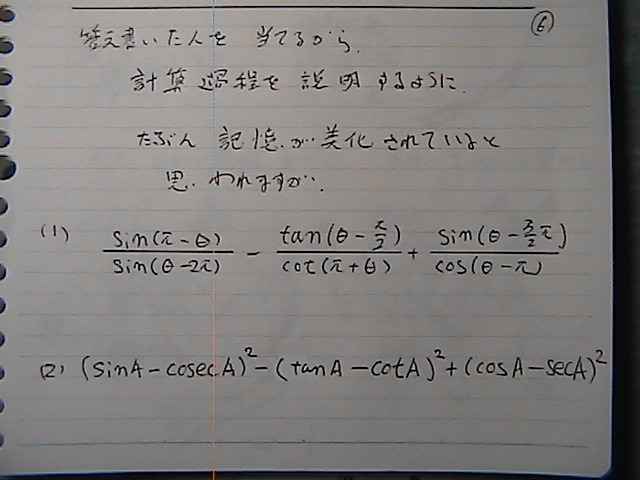 ⑥
答え書いた人を 当てるから、
計算過程を説明するように。
たぶん 記憶が美化されていると
思われますが、
(1) \frac{sin(π-θ)}{sin(θ-2π)} - \frac{tan(θ-\frac{π}{2})}{cot(π+θ)} + \frac{sin(θ-\frac{3}{2}π)}{cos(θ-π)}
(2) (sinA-cosecA)² - (tanA-cotA)² + (cosA-secA)²